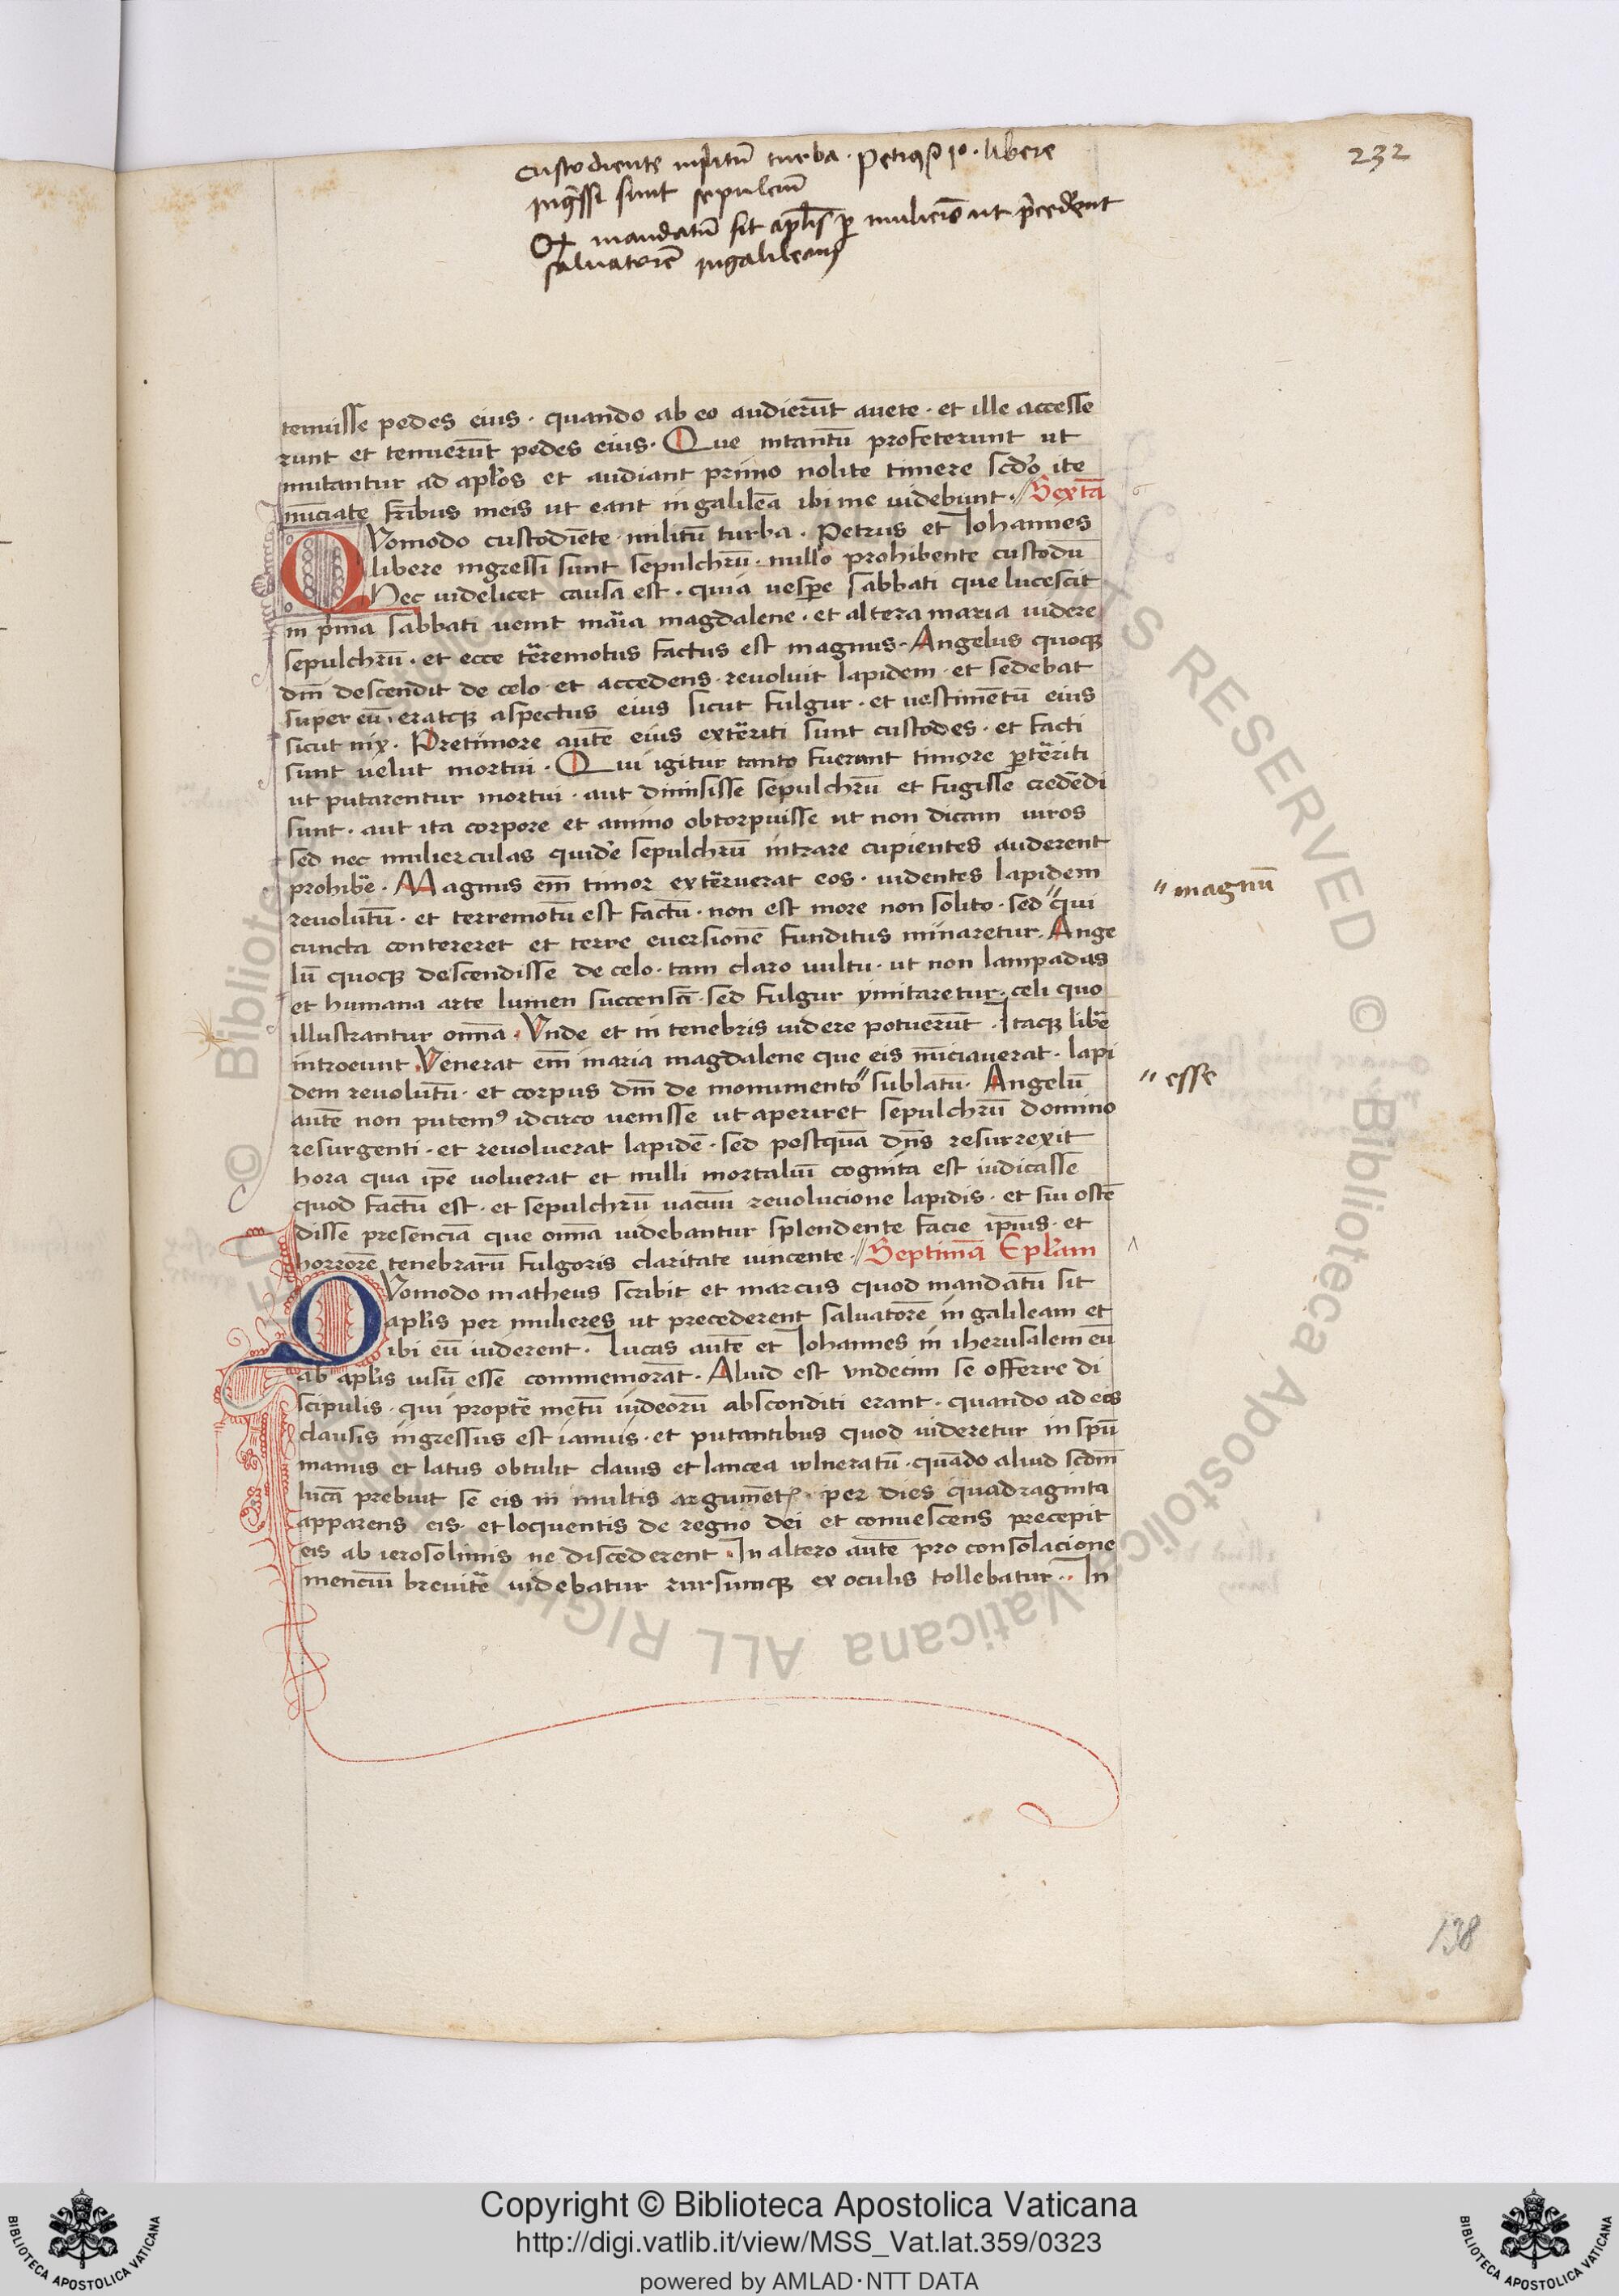 custodiente militū turba · petrus ⁊ Io · libere
ingressi sunt sepulcrū
mandatū sit aplis per mulieres ut precederent
salvatorē in galileam
232
tenuisse pedes eius · quando ab eo audierūt auete · et ille accesse
runt et tenuerūt pedes eius · Que intantū profecerunt ut
mutantur ad aplos et audiant primo nolite timere scdo ite
nūciate fribus meis ut eant in galileā ibi me uidebunt · // Sextā
Quomodo custodiente militū turba · Petrus et Iohannes
libere ingressi sunt sepulchrū · nullo prohibente custodū
Hec uidelicet causa est · quia uespe sabbati que lucescit
in pma sabbati uenit maria magdalene · et altera maria uidere
sepulchrū · et ecce terremotus factus est magnus · Angelus quoq
dm̄ descendit de celo · et accedens · reuoluit lapidem · et sedebat
super eū · eratq aspectus eius sicut fulgur · et uestimētū eius
sicut nix · Pretimore autē eius exterriti sunt custodes · et facti
sunt uelut mortui · Qui igitur tanto fuerant timore pterriti
ut putarentur mortui · aut dimisisse sepulchrū et fugisse credēdi
sunt · aut ita corpore et animo obtorpuisse ut non dicam uiros
sed nec mulierculas quidē sepulchrū intrare cupientes auderent
prohibere · Magnus em̄ timor exterruerat eos · uidentes lapidem
reuolutū · et terremotū est factū · non est more non solito · sed " qui
" magnū
cuncta contereret et terre euersionē funditus minaretur · Ange
lū quoq descendisse de celo · tam claro uultu · ut non lampadas
et humana arte lumen succensū · sed fulgur ymitaretur · celi quo
illustrantur omnia · Vnde et in tenebris uidere potuerūt · Itaq libere
introeunt Venerat em̄ maria magdalene que eis nūciauerat · lapi
dem reuolutū · et corpus dm̄ de monumento " sublatū · Angelū
" esse
autē non putemꝰ idcirco uenisse ut aperiret sepulchrū domino
resurgenti · et reuoluerat lapidē · sed postquā dn̄s resurrexit
hora qua ip̄e uoluerat et nulli mortaliū cognita est iudicasse
quod factū est · et sepulchrū uacuū reuolucione lapidis · et sui ostē
disse presenciā que omnia uidebantur splendente facie ip̄ius · et
horrorē tenebrarū fulgoris claritate uincente · // Septimā Eplam
Quomodo matheus scribit et marcus quod mandatū sit
aplis per mulieres ut precederent saluatorē in galileam et
ibi eū uiderent · Lucas autē et Iohannes in iherusalem eū
ab aplis uisū esse commemorāt · Aliud est vndecim se offerre di
scipulis · qui propter metū iudeorū absconditi erant · quando ad eos
clausis ingressus est ianuis · et putantibus quod uideretur in spū
manus et latus obtulit clauis et lancea uulneratū · quādo aliud scdm̄
lucā prebuit se eis in multis argumēt · per dies quadraginta
apparens eis · et loquentis de regno dei et conuescens precepit
eis ab ierosolimis ne discederent · In altero autē pro consolacione
menciū breuiter uidebatur rursumq ex oculis tollebatur · In
138
Copyright © Biblioteca Apostolica Vaticana
http://digi.vatlib.it/view/MSS_Vat.lat.359/0323
powered by AMLAD·NTT DATA
BIBLIOTECA APOSTOLICA VATICANA
BIBLIOTECA APOSTOLICA VATICANA
© Biblioteca Apostolica Vaticana ALL RIGHTS RESERVED